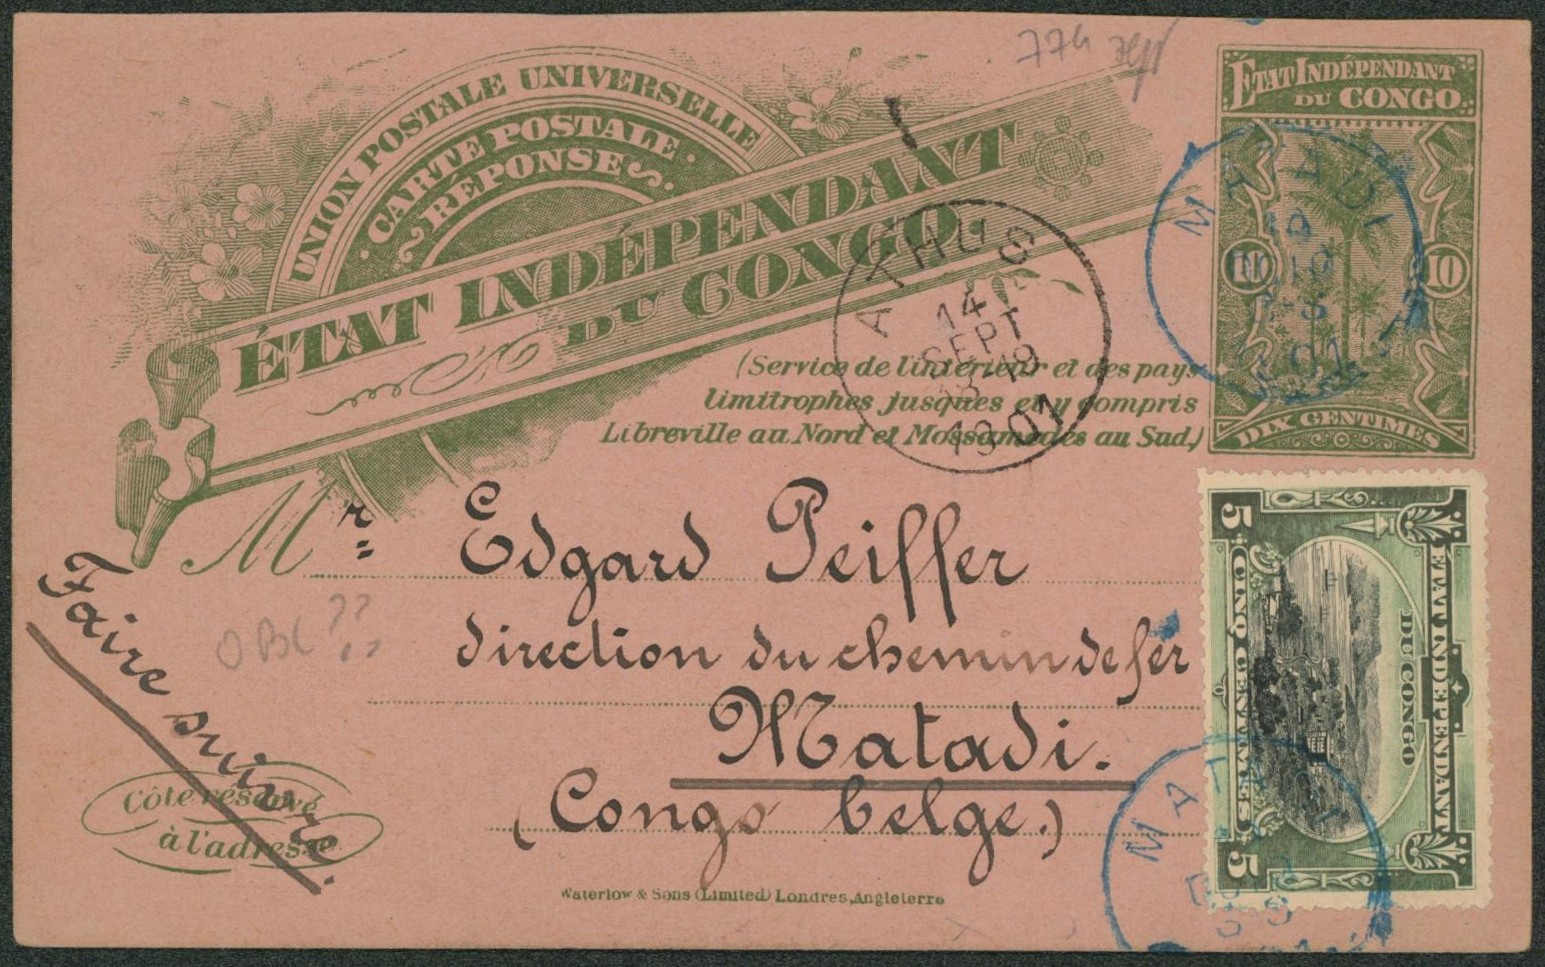 77a
UNION POSTALE UNIVERSELLE
CARTE POSTALE
RÉPONSE
ÉTAT INDÉPENDANT
DU CONGO.
ÉTAT INDÉPENDANT
DU CONGO
10 10
DIX CENTIMES
MATADI
10
01
ATHUS
14
SEPT
1901
(Service de l'intérieur et des pays
limitrophes jusques et y compris
Libreville au Nord et Mossamedes au Sud.)
Mr Edgard Peiffer
direction du chemin de fer
Matadi.
(Congo belge.)
Faire suivre.
OBL ??
Côté réservé
à l'adresse
ÉTAT INDÉPENDANT
DU CONGO
5 CINQ CENTIMES 5
MATADI
Waterlow & Sons (Limited) Londres, Angleterre